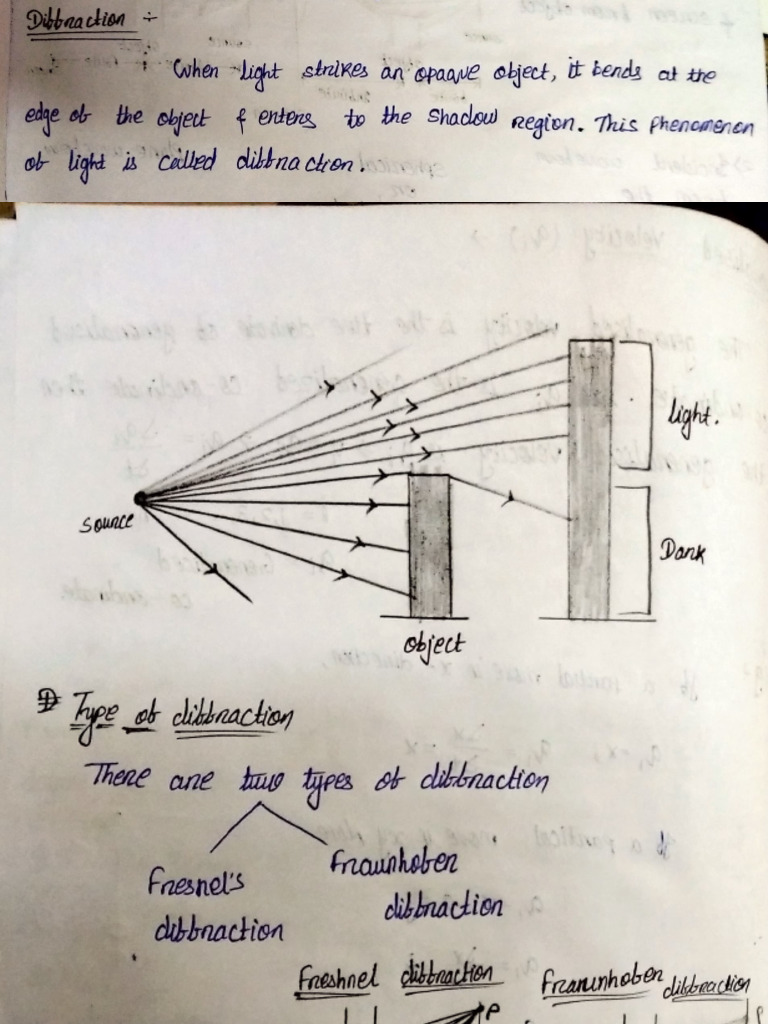 Diffraction ÷
When light strikes an opaque object, it bends at the
edge of the object & enters to the shadow region. This phenomenon
of light is called diffraction.
light.
Source
Dark
object
Type of diffraction
There are two types of diffraction
Fresnel's
diffraction
Fraunhofer
diffraction
Freshnel diffraction
Fraunhofer diffraction
P
P